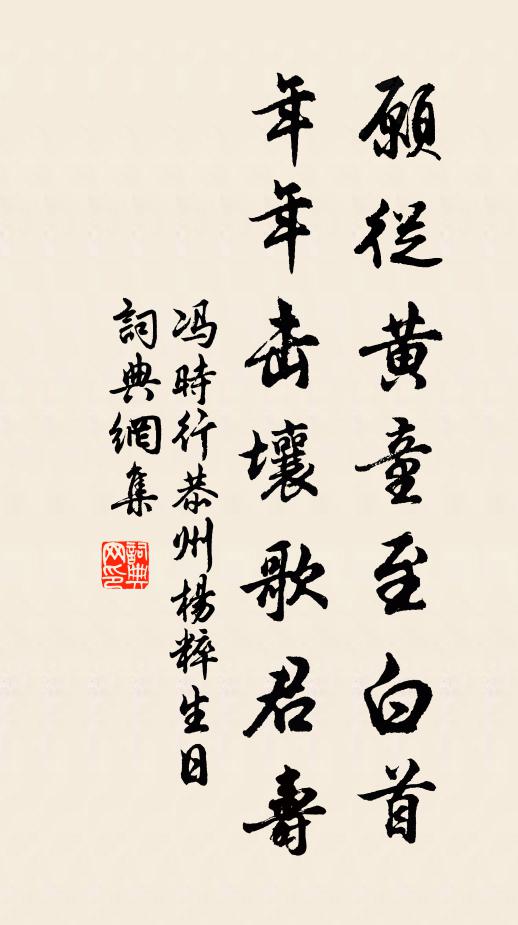 願從黃童至白首
年年击壤歌君壽
冯時行恭州楊粹生日
詞典網集
詞典
网印